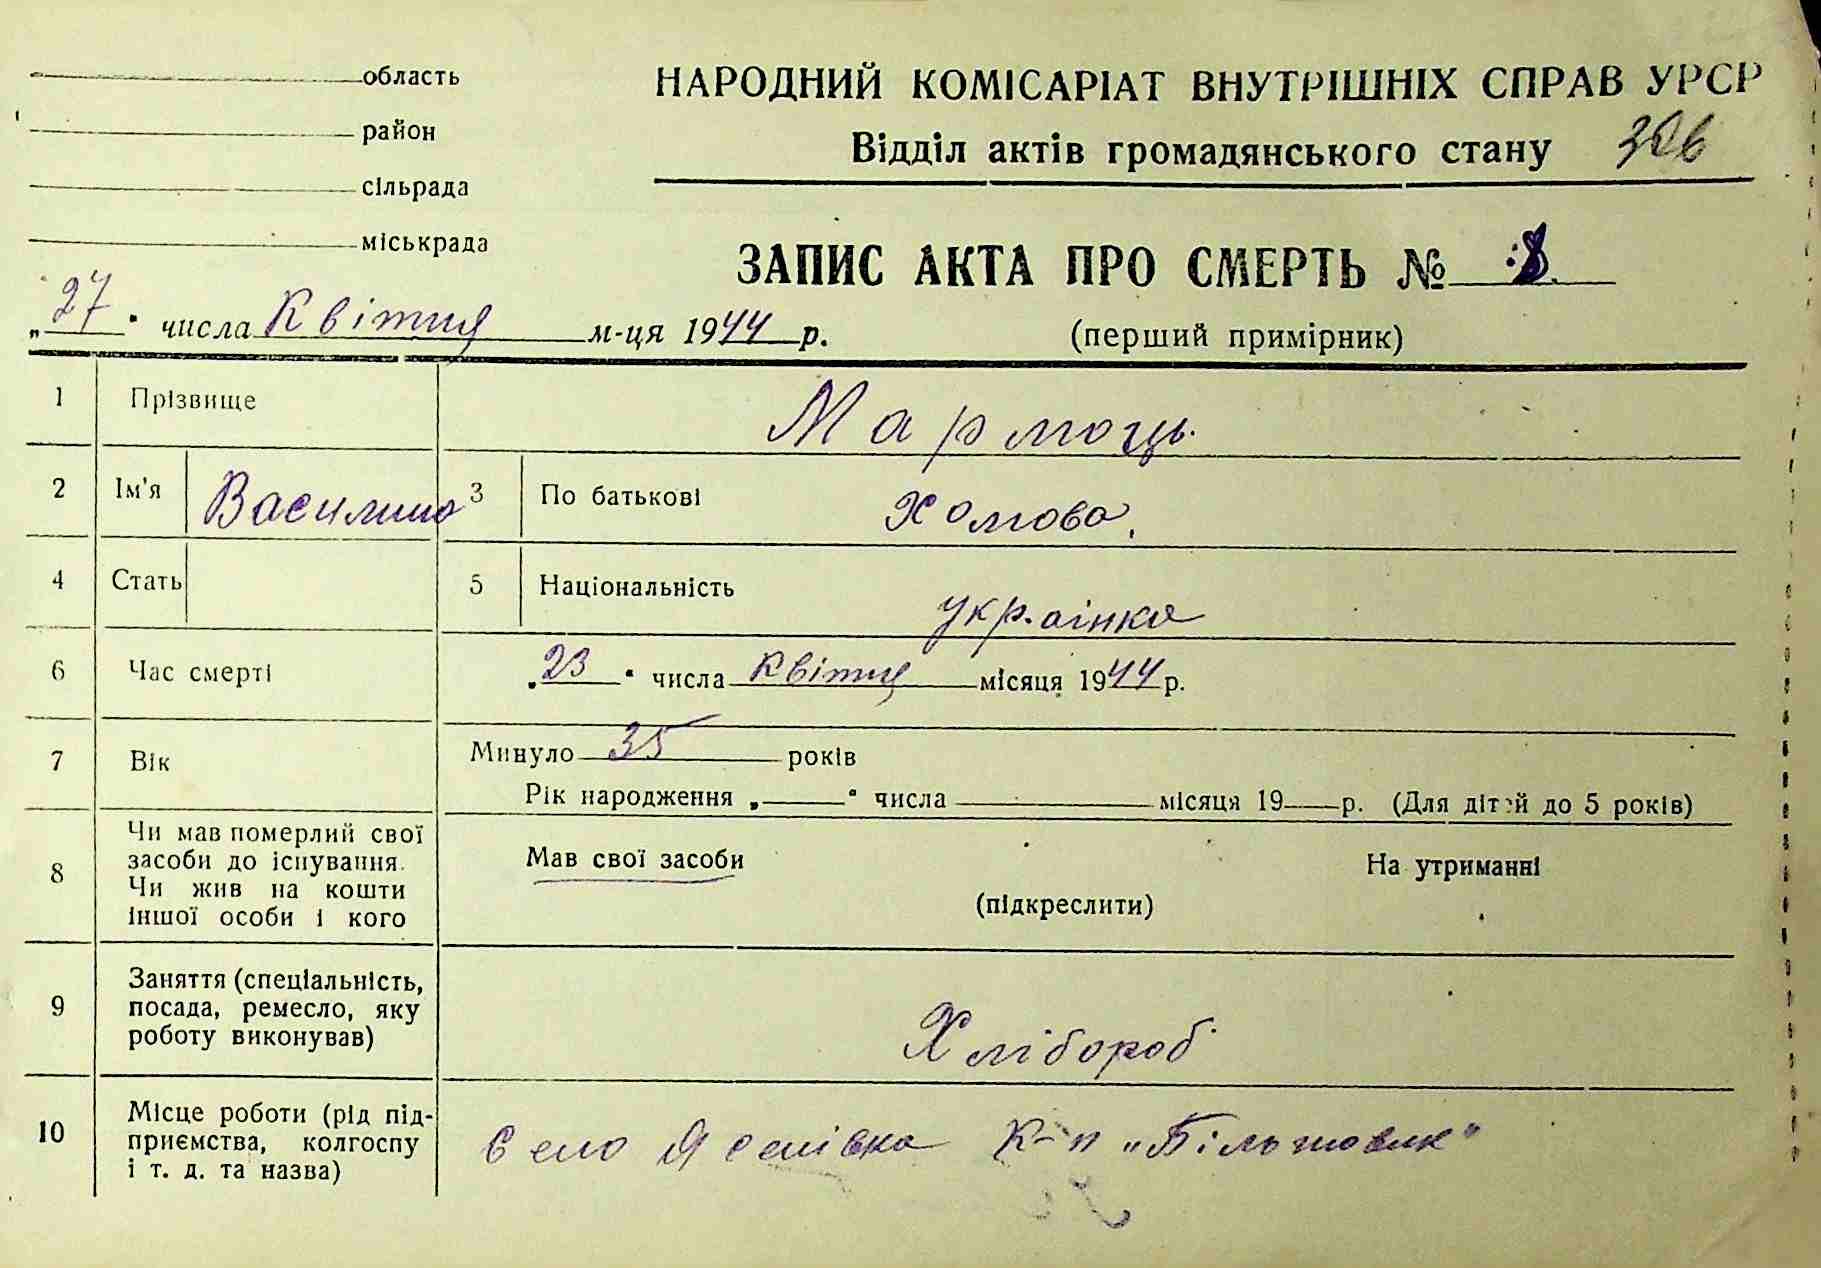 область
район
сільрада
міськрада
НАРОДНИЙ КОМІСАРІАТ ВНУТРІШНІХ СПРАВ УРСР
Відділ актів громадянського стану 326
ЗАПИС АКТА ПРО СМЕРТЬ № 8.
(перший примірник)
„27“ числа Квітня м-ця 1944 р.
1 Прізвище Мармоць.
2 Ім'я Василина 3 По батькові Хомова,
4 Стать 5 Національність українка
6 Час смерті „23“ числа Квітня місяця 1944 р.
7 Вік Минуло 35 років
Рік народження „ “ числа місяця 19 р. (Для дітей до 5 років)
8 Чи мав померлий свої
засоби до існування.
Чи жив на кошти
іншої особи і кого
Мав свої засоби На утриманні
(підкреслити)
9 Заняття (спеціальність,
посада, ремесло, яку
роботу виконував)
Хлібороб
10 Місце роботи (рід під-
приємства, колгоспу
і т. д. та назва)
Село К-п „Більшовик“